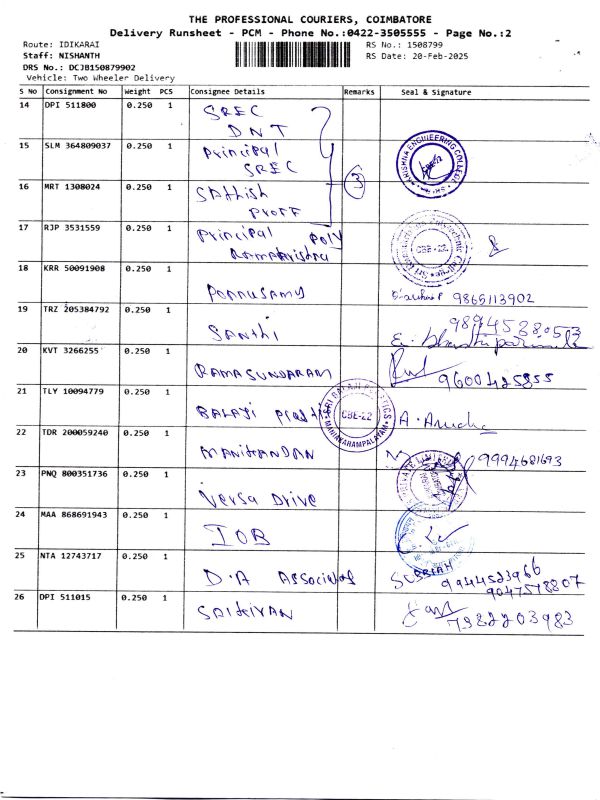 THE PROFESSIONAL COURIERS, COIMBATORE
Delivery Runsheet - PCM - Phone No.:0422-3505555 - Page No.:2
Route: IDIKARAI RS No.: 1508799
Staff: NISHANTH RS Date: 20-Feb-2025
DRS No.: DCJB150879902
Vehicle: Two Wheeler Delivery
S No Consignment No Weight PCS Consignee Details Remarks Seal & Signature
14 DPI 511800 0.250 1 SREC
DNT
15 SLM 364809037 0.250 1 Principal
SREC
KRISHNA ENGINEERING COLLEGE
16 MRT 1308024 0.250 1 Sathish
Proff
3
17 RJP 3531559 0.250 1 Principal Poly
Ramakrishna
CBE-22
18 KRR 50091908 0.250 1 Ponnusamy 9865113902
19 TRZ 205384792 0.250 1 Santhi 9894538053
20 KVT 3266255 0.250 1 RAMASUNDARAM 9600425855
21 TLY 10094779 0.250 1 BALAJI Plasti
SRI BALAJI PLASTICS CBE-22 MANIAKARAMPALAYAM
A. Anusha
22 TDR 200059240 0.250 1 MANIKANDAN 9994681693
23 PNQ 800351736 0.250 1 Versa Drive
24 MAA 868691943 0.250 1 IOB
25 NTA 12743717 0.250 1 D.A Associates SUBBIAH 9944523966
9047578807
26 DPI 511015 0.250 1 7982203983